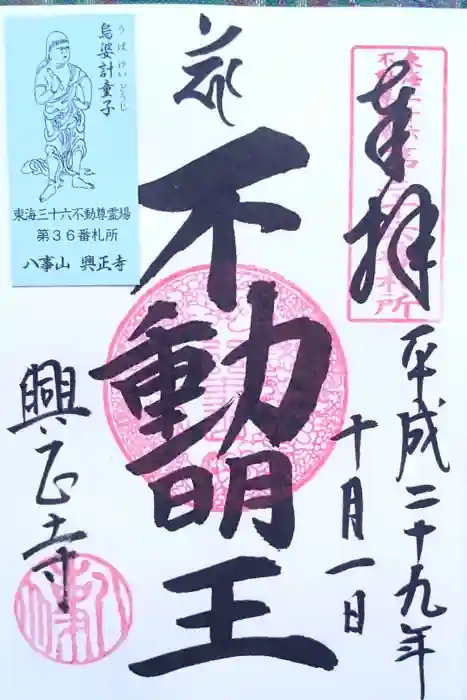 奉拝
平成二十九年
十月一日
不動明王
興正寺
烏婆計童子
うばけいどうじ
東海三十六不動尊霊場
第36番札所
八事山 興正寺